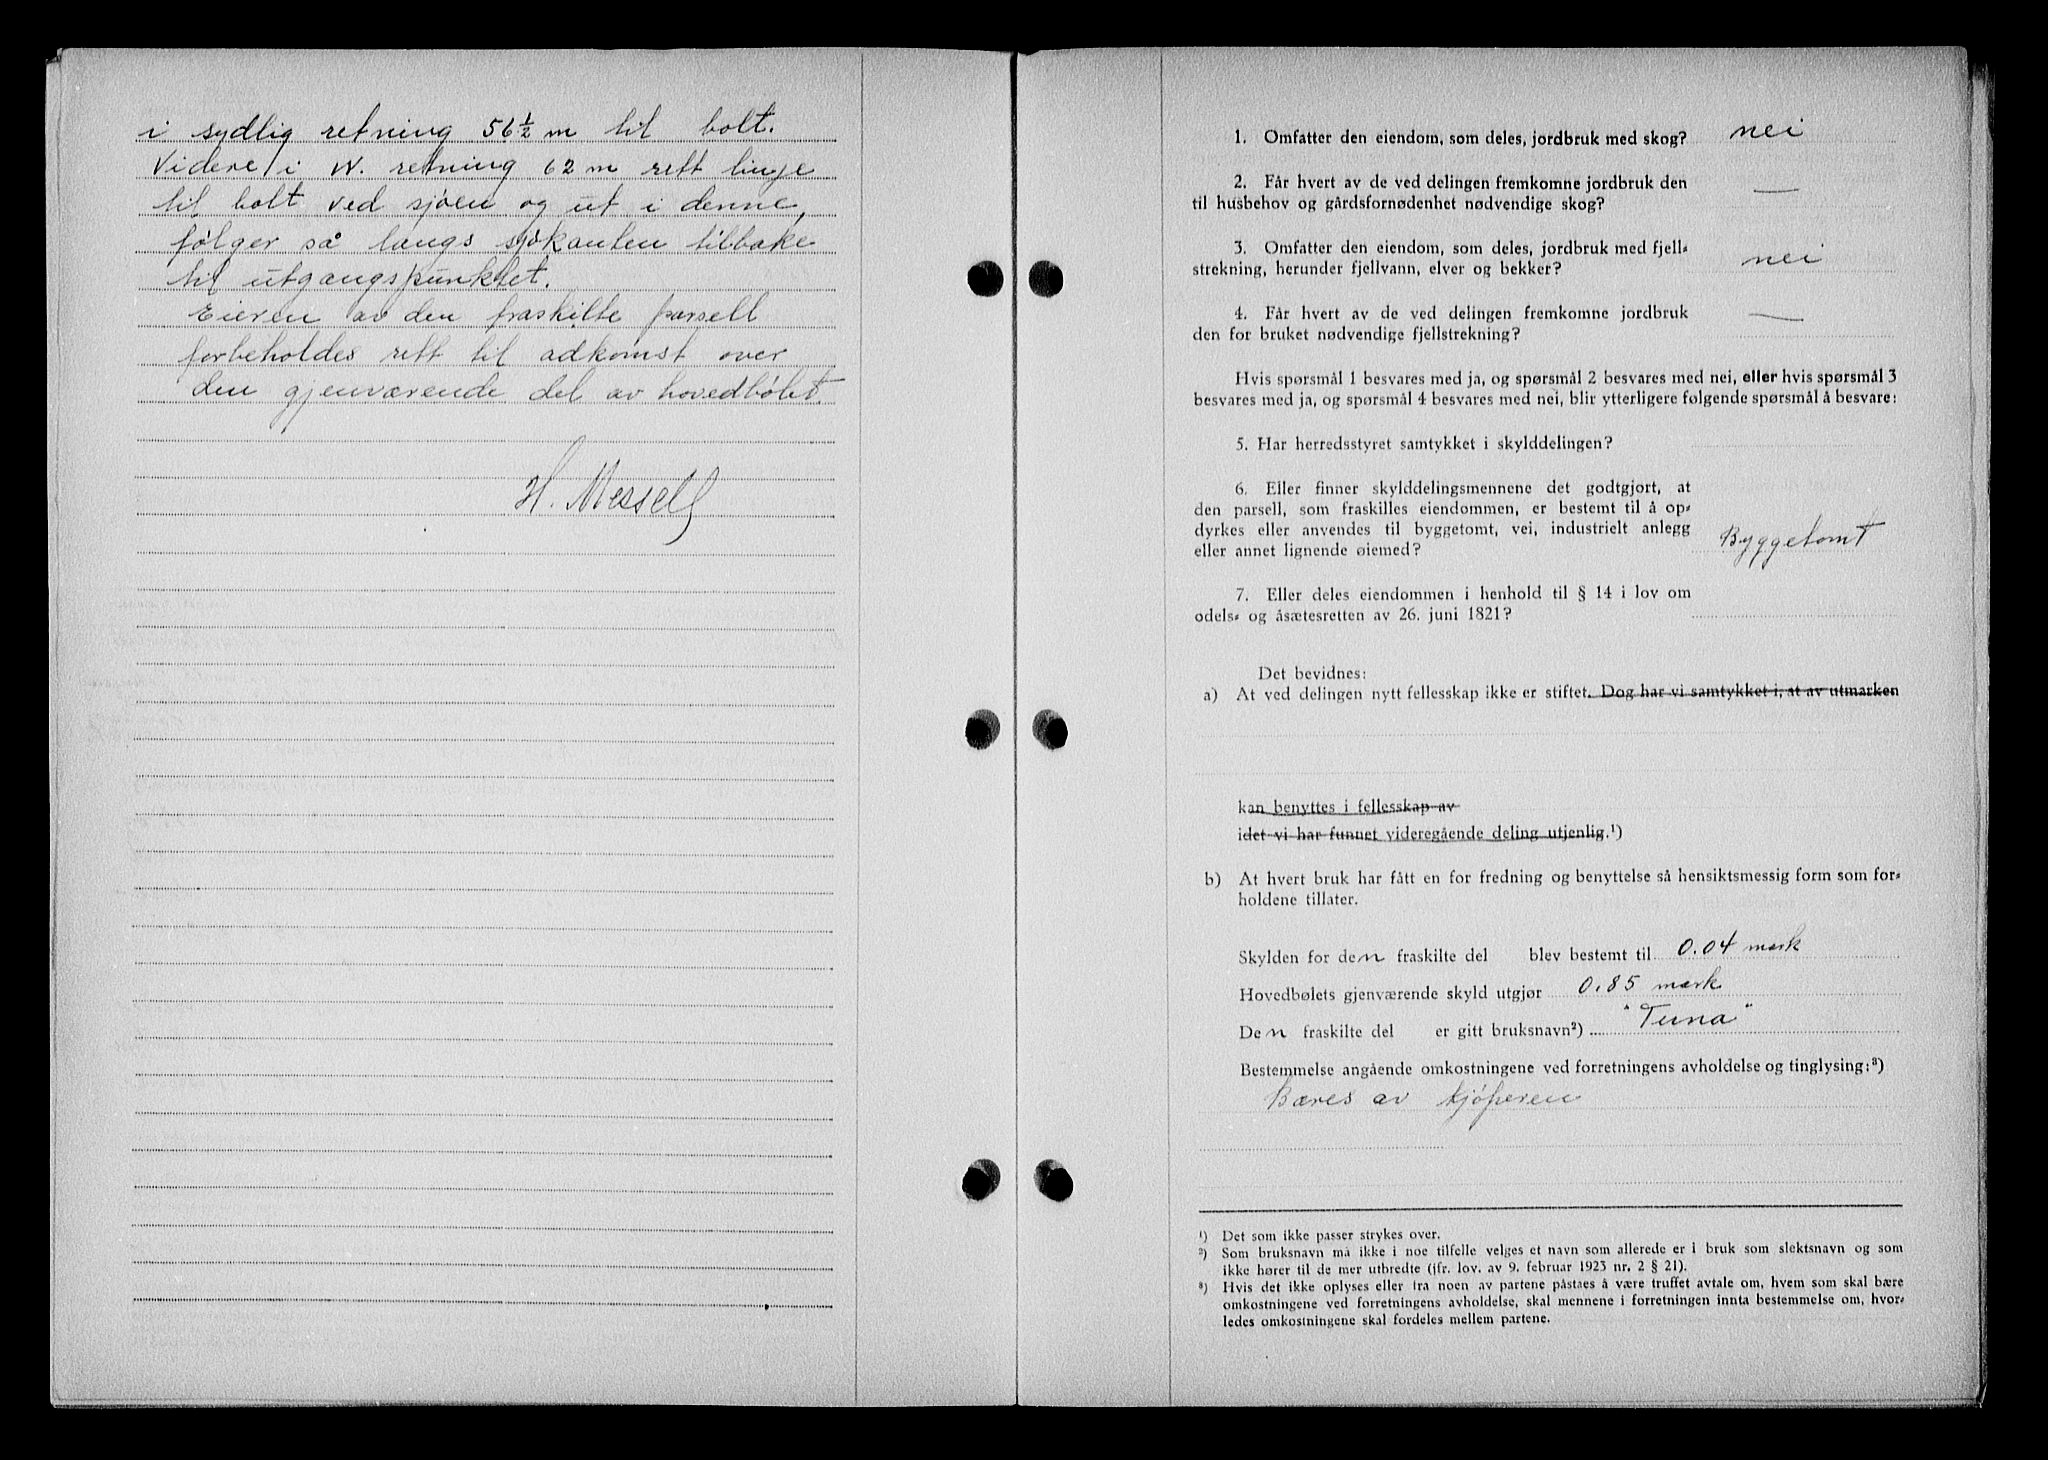 i sydlig retning 56 ½ m til bolt.
Videre i N. retning 62 m rett linje
til bolt ved sjøen og ut i denne,
følger så langs sjøkanten tilbake
til utgangspunktet.
Eieren av den fraskilte parsell
forbeholdes rett til adkomst over
den gjenværende del av hovedbølet.
H. Messell
1. Omfatter den eiendom, som deles, jordbruk med skog? nei
2. Får hvert av de ved delingen fremkomne jordbruk den
til husbehov og gårdsfornødenhet nødvendige skog? —
3. Omfatter den eiendom, som deles, jordbruk med fjell-
strekning, herunder fjellvann, elver og bekker? nei
4. Får hvert av de ved delingen fremkomne jordbruk
den for bruket nødvendige fjellstrekning? —
Hvis spørsmål 1 besvares med ja, og spørsmål 2 besvares med nei, eller hvis spørsmål 3
besvares med ja, og spørsmål 4 besvares med nei, blir ytterligere følgende spørsmål å besvare:
5. Har herredsstyret samtykket i skylddelingen?
6. Eller finner skylddelingsmennene det godtgjort, at
den parsell, som fraskilles eiendommen, er bestemt til å op-
dyrkes eller anvendes til byggetomt, vei, industrielt anlegg
eller annet lignende øiemed? Byggetomt
7. Eller deles eiendommen i henhold til § 14 i lov om
odels- og åsætesretten av 26. juni 1821?
Det bevidnes:
a) At ved delingen nytt fellesskap ikke er stiftet. Dog har vi samtykket i, at av utmarken
kan benyttes i fellesskap av
idet vi har funnet videregående deling utjenlig.¹)
b) At hvert bruk har fått en for fredning og benyttelse så hensiktsmessig form som for-
holdene tillater.
Skylden for den fraskilte del blev bestemt til 0.04 mark
Hovedbølets gjenværende skyld utgjør 0.85 mark
Den fraskilte del er gitt bruksnavn²) "Tuna"
Bestemmelse angående omkostningene ved forretningens avholdelse og tinglysing:³)
Bæres av kjøperen
¹) Det som ikke passer strykes over.
²) Som bruksnavn må ikke i noe tilfelle velges et navn som allerede er i bruk som slektsnavn og som
ikke hører til de mer utbredte (jfr. lov. av 9. februar 1923 nr. 2 § 21).
³) Hvis det ikke oplyses eller fra noen av partene påstaes å være truffet avtale om, hvem som skal bære
omkostningene ved forretningens avholdelse, skal mennene i forretningen innta bestemmelse om, hvor-
ledes omkostningene skal fordeles mellem partene.